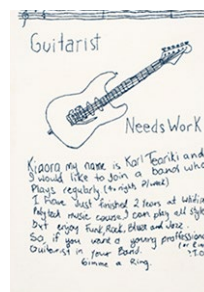 Guitarist
Needs Work
Kiaora my name is Karl Teariki and
I would like to join a band who
Plays regularly (
I have just finished 2 years at
Polytech music course I can play all style
but enjoy Funk, Rock, Blues and Jazz.
So, if you want a young proffession
Guitarist in Your Band.
Gimme a Ring.